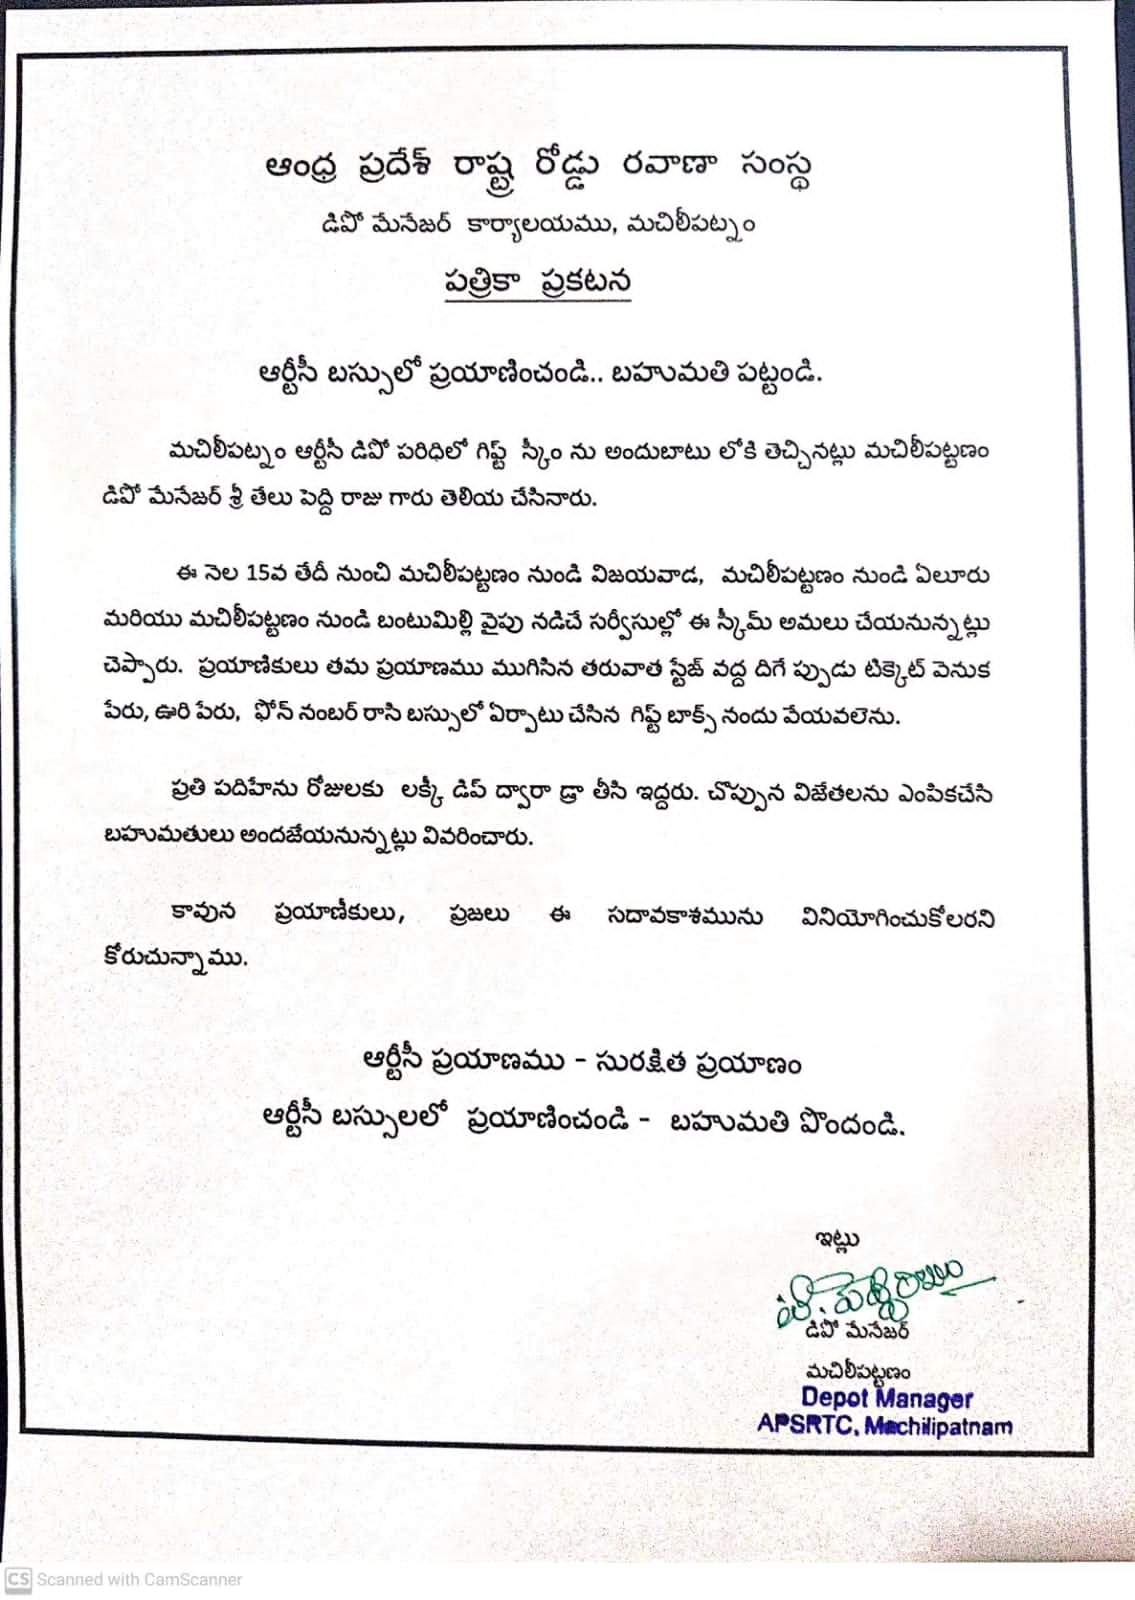 ఆంధ్ర ప్రదేశ్ రాష్ట్ర రోడ్డు రవాణా సంస్థ
డిపో మేనేజర్ కార్యాలయము, మచిలీపట్నం
పత్రికా ప్రకటన
ఆర్టీసీ బస్సులో ప్రయాణించండి.. బహుమతి పట్టండి.
మచిలీపట్నం ఆర్టీసీ డిపో పరిధిలో గిఫ్ట్ స్కీం ను అందుబాటు లోకి తెచ్చినట్లు మచిలీపట్టణం
డిపో మేనేజర్ శ్రీ తేలు పెద్ది రాజు గారు తెలియ చేసినారు.
ఈ నెల 15వ తేదీ నుంచి మచిలీపట్టణం నుండి విజయవాడ, మచిలీపట్టణం నుండి ఏలూరు
మరియు మచిలీపట్టణం నుండి బంటుమిల్లి వైపు నడిచే సర్వీసుల్లో ఈ స్కీమ్ అమలు చేయనున్నట్లు
చెప్పారు. ప్రయాణికులు తమ ప్రయాణము ముగిసిన తరువాత స్టేజ్ వద్ద దిగే ప్పుడు టిక్కెట్ వెనుక
పేరు, ఊరి పేరు, ఫోన్ నంబర్ రాసి బస్సులో ఏర్పాటు చేసిన గిఫ్ట్ బాక్స్ నందు వేయవలెను.
ప్రతి పదిహేను రోజులకు లక్కీ డిప్ ద్వారా డ్రా తీసి ఇద్దరు. చొప్పున విజేతలను ఎంపికచేసి
బహుమతులు అందజేయనున్నట్లు వివరించారు.
కావున ప్రయాణీకులు, ప్రజలు ఈ సదావకాశమును వినియోగించుకోలరని
కోరుచున్నాము.
ఆర్టీసీ ప్రయాణము - సురక్షిత ప్రయాణం
ఆర్టీసీ బస్సులలో ప్రయాణించండి - బహుమతి పొందండి.
ఇట్లు
డిపో మేనేజర్
మచిలీపట్టణం
Depot Manager
APSRTC, Machilipatnam
CS Scanned with CamScanner